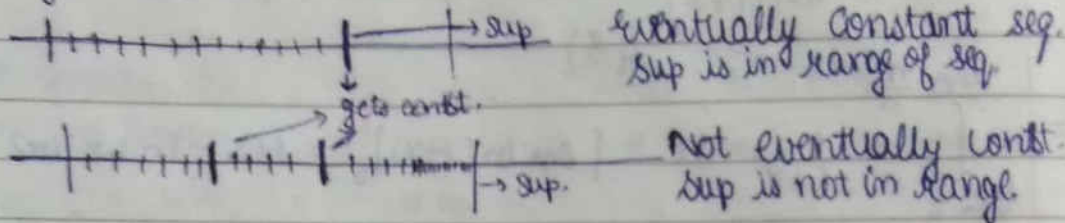 → sup
eventually constant seq.
sup is in range of seq.
gets const.
Not eventually const.
→ sup.
sup is not in Range.